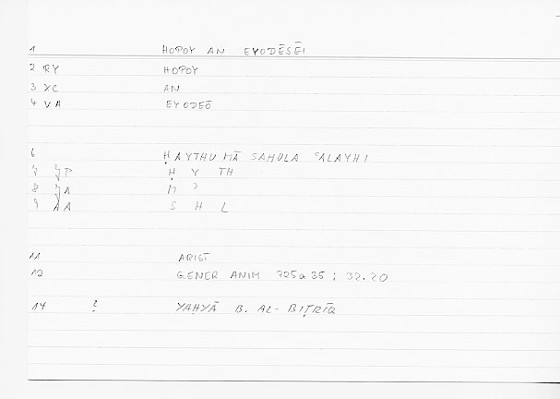 1 HOPOY AN EYODĒSĒI
2 RY HOPOY
3 XC AN
4 VA EYODEŌ
6 ḤAYTHU MĀ SAHULA ʿALAYHI
7 JP Ḥ Y TH
8 JA M ʾ
9 AA S H L
11 ARIST
12 GENER ANIM 725a35 ; 32.20
14 ? YAḤYĀ B. AL-BIṬRĪQ